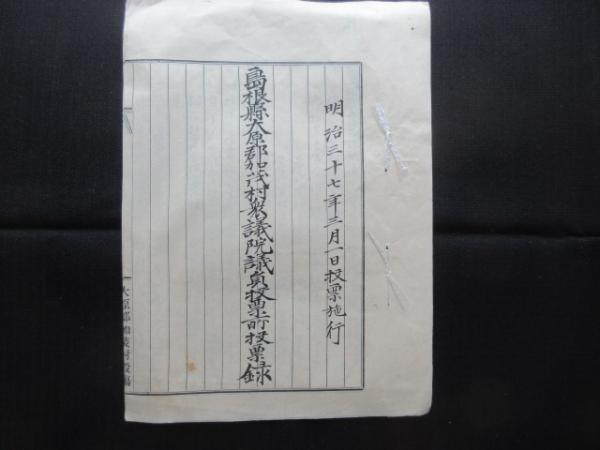 明治三十七年三月一日投票施行
島根縣大原郡加茂村衆議院議員投票所投票録
大原郡加茂村役場